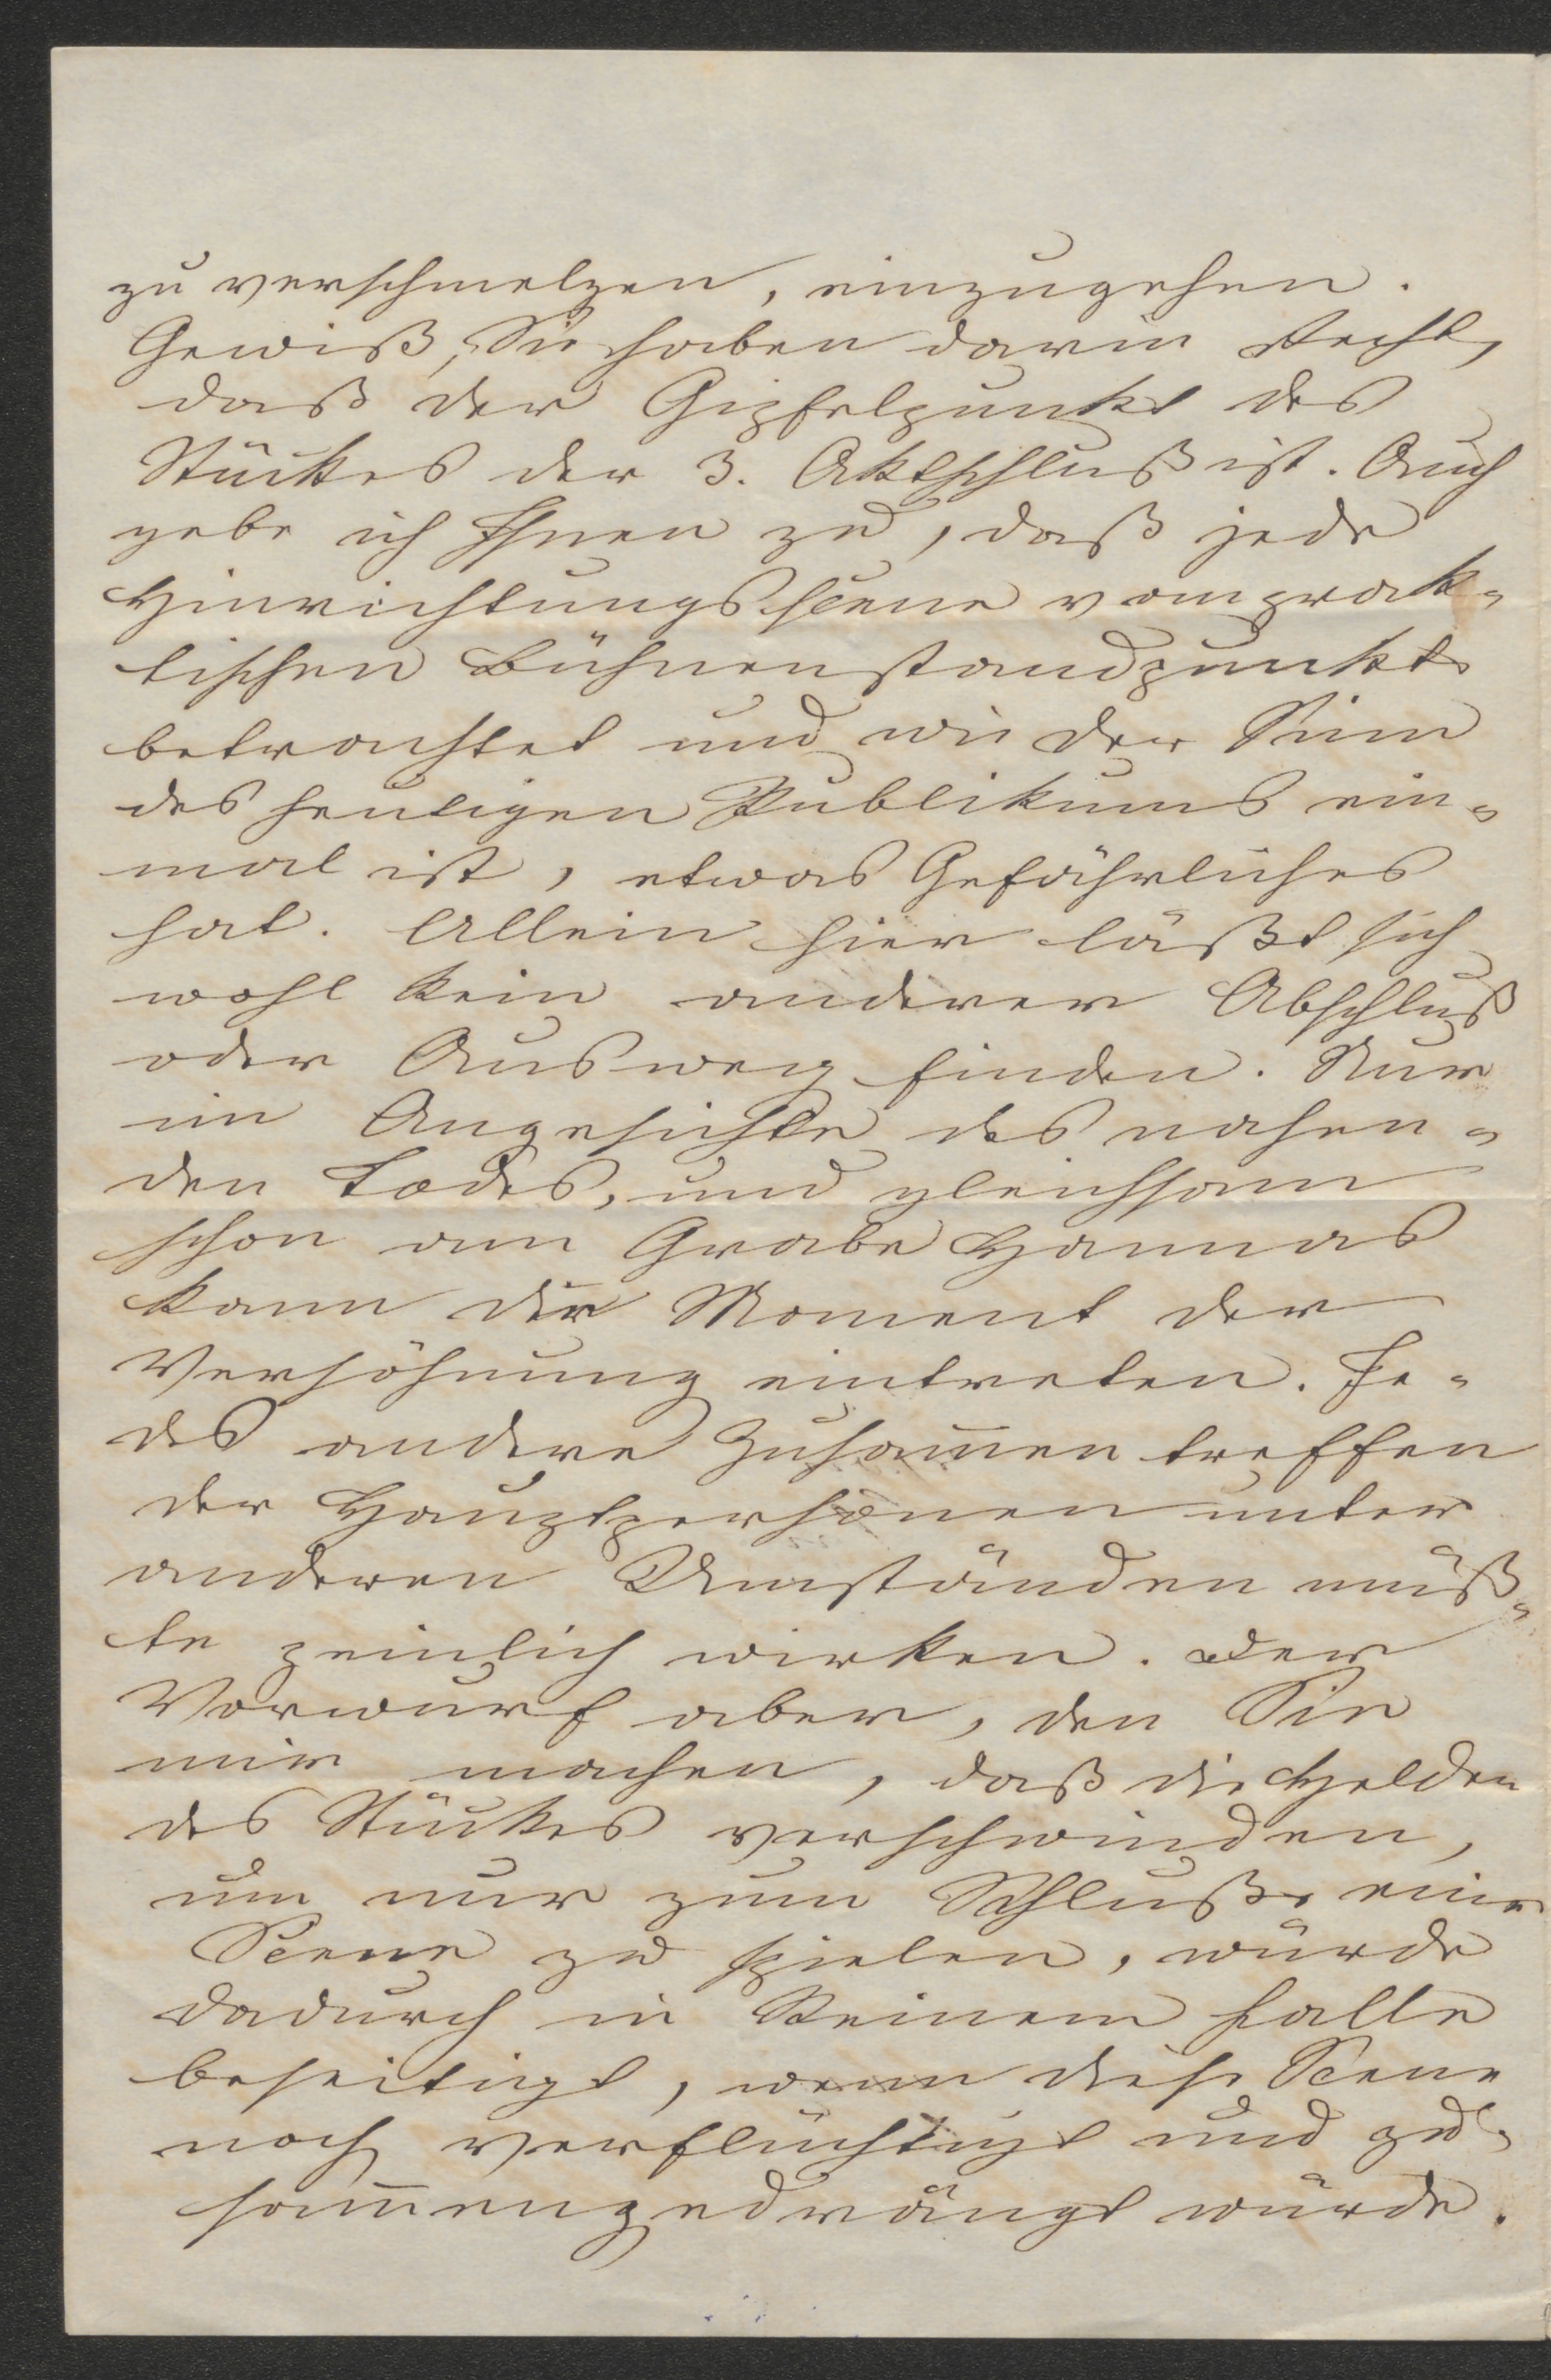 zu verschmelzen, einzugehen.
Gewiß, Sie haben darin Recht,
daß der Gipfelpunkt des
Stückes der 3. Aktschluß ist. Auch
gebe ich Ihnen zu, daß jede
Hinrichtungsscene vom prak=
tischen Bühnenstandpunkte
betrachtet und wie der Sinn
des heutigen Publikums ein=
mal ist, etwas Gefährliches
hat. Allein hier läßt sich
wohl kein anderer Abschluß
oder Ausweg finden. Nur
im Angesichte des nahen=
den Todes, und gleichsam
schon am Grabe Hannas
kann der Moment der
Versöhnung eintreten. Je=
des andere Zusam̄en treffen
der Hauptpersonen unter
anderen Umständen müß=
te peinlich wirken. Der
Vorwurf aber, den Sie
mir machen, daß die Helden
des Stückes verschwinden,
um nur zum Schluße eine
Scene zu spielen, würde
dadurch in keinem Falle
beseitigt, wenn diese Scene
noch verflüchtigt und zu=
sam̄engedrängt würde.